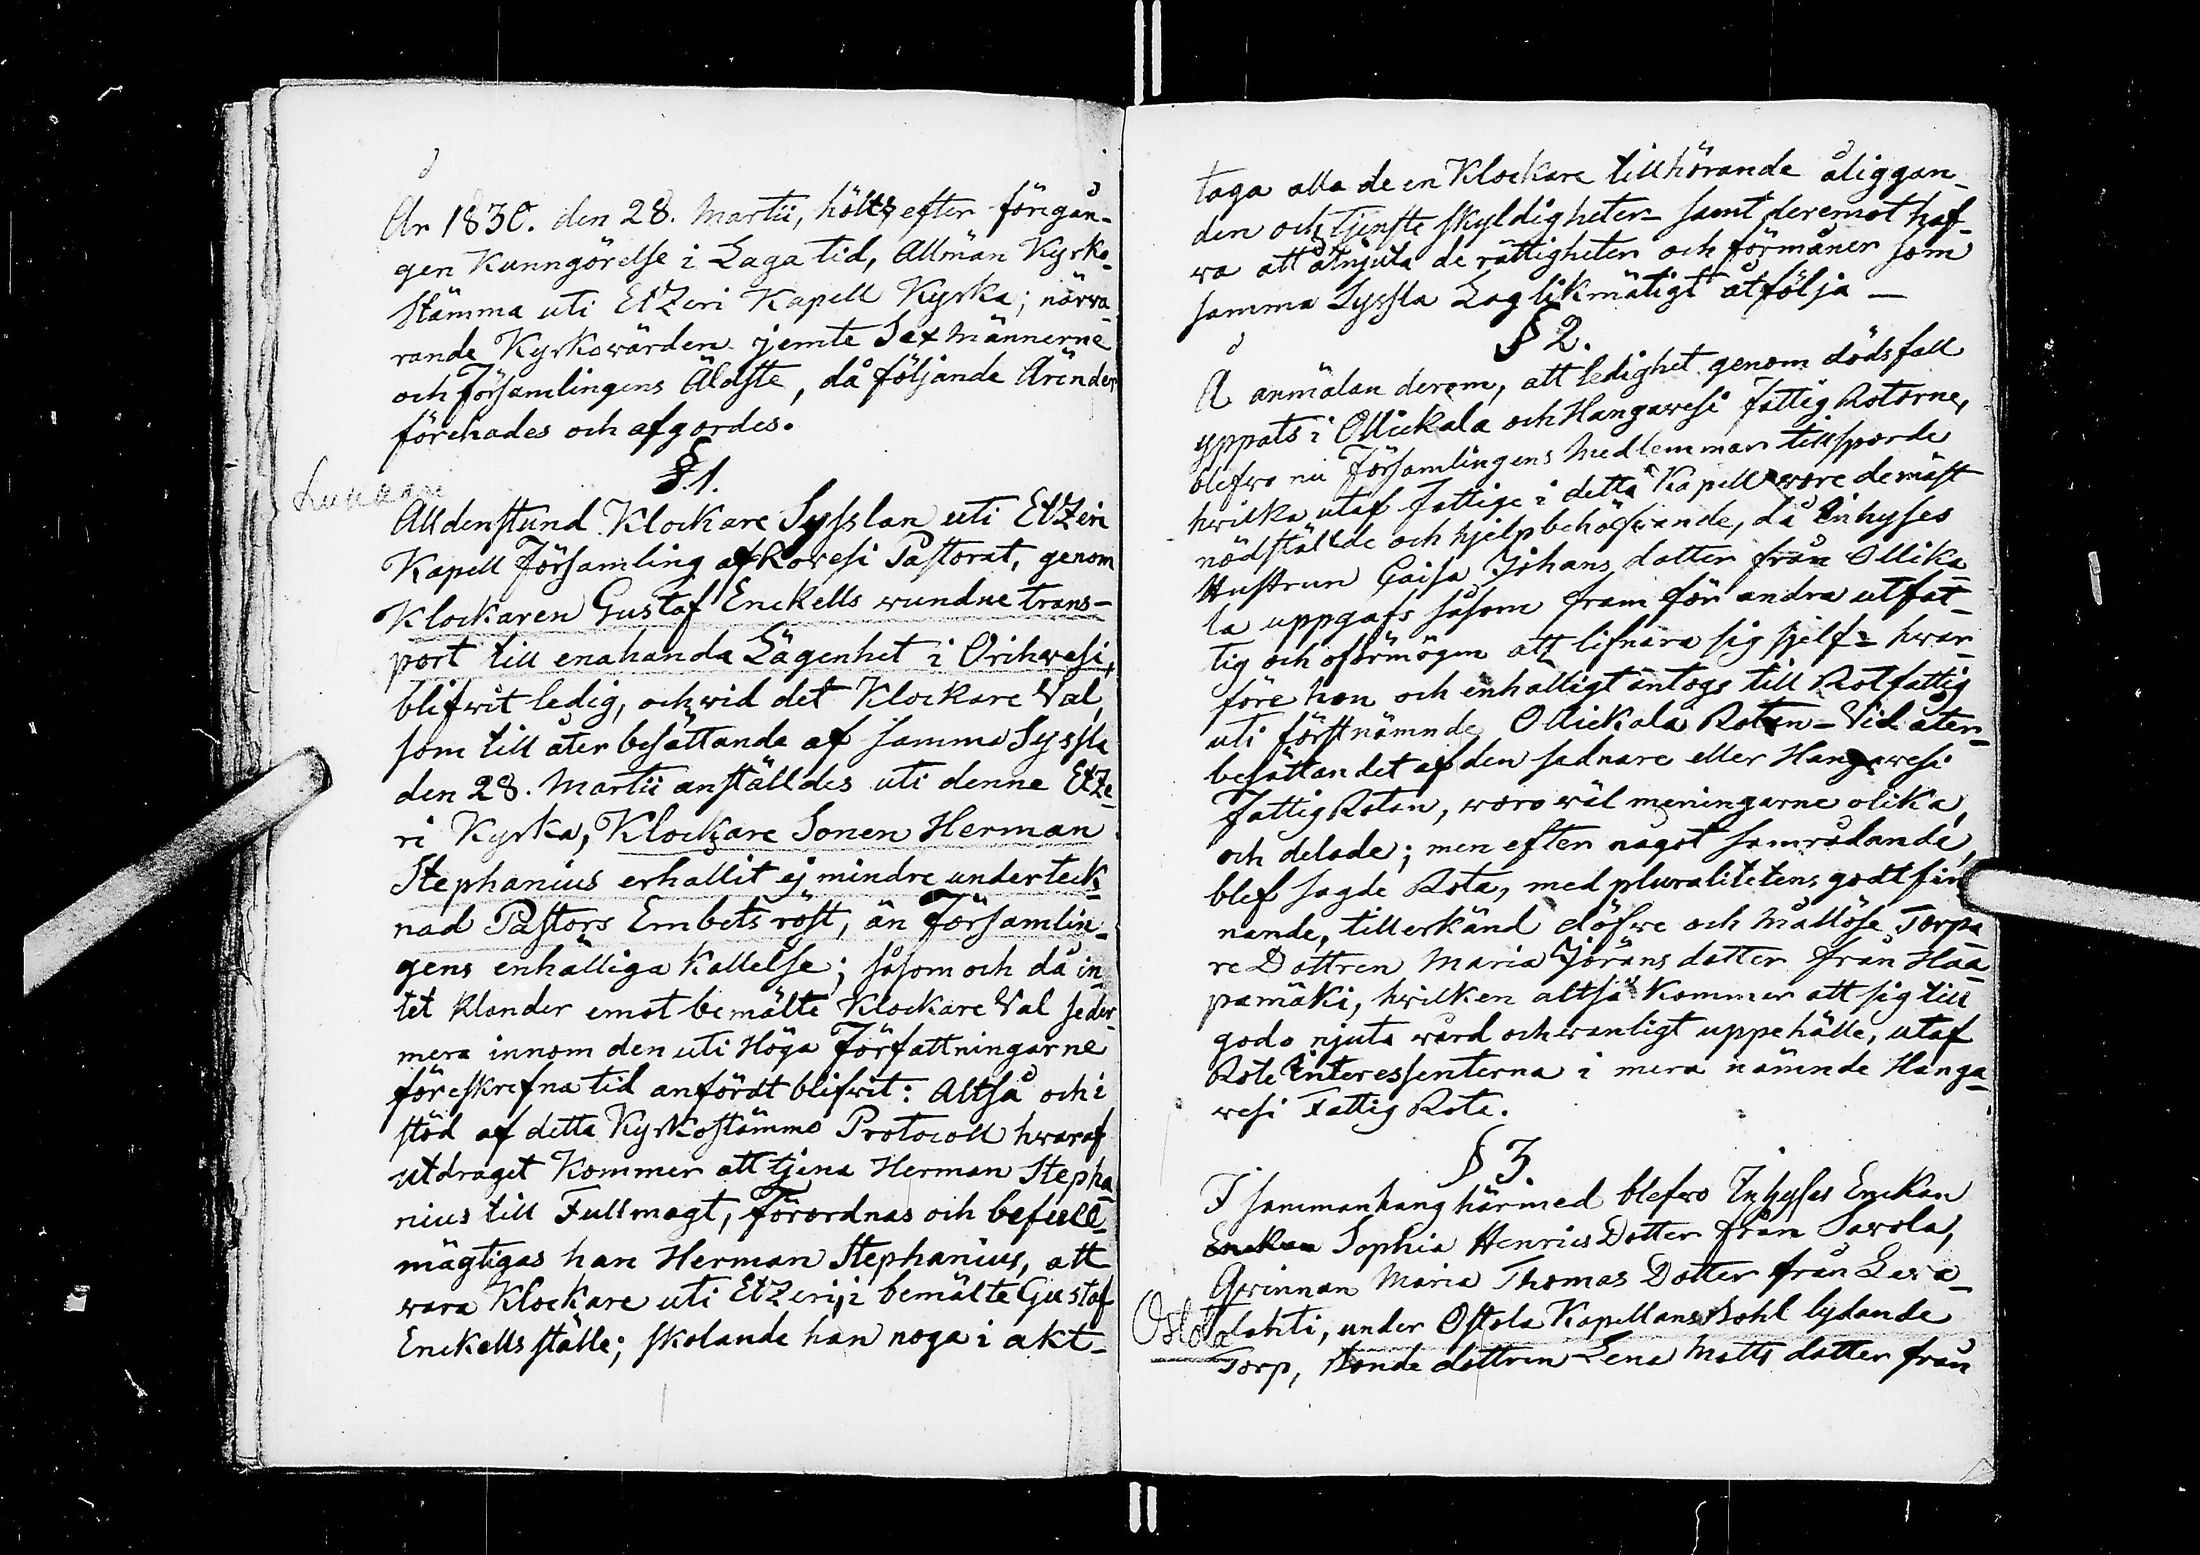 År 1830. den 28. Martii, hölts efter föregån-
gen Kunngörelse i Laga tid, Allmän Kyrko-
stämma uti EtZeri Kapell Kyrka; närva-
rande Kyrkovärden jemte Sexmännerne
och Församlingens Äldste, då följande Ärender
förehades och afgordes.
§ 1.
Alldenstund Klockare Sysslan uti EtZeri
Kapell Församling af Rovesi Pastorat, genom
Klockaren Gustaf Enckells wundne trans-
port till enahanda Lägenhet i Orihwesi,
blifwit ledig, och wid det Klockare Val,
som till återbesättande af samma Syssla
den 28. Martii anställdes uti denne EtZe-
ri Kyrka, Klockare Sonen Herman
Stephanius erhållit ej mindre underteck-
nad Pastors Embets röst, än Församlin-
gens enhälliga Kallelse; såsom och då in-
tet Klander emot bemälte Klockare Val seder-
mera innom den uti Höga Författningarne
föreskrefna tid anfördt blifwit: Altså och i
stöd af detta Kyrkostämmo Protocoll hwaraf
utdraget Kommer att tjena Herman Stepha-
nius till Fullmagt, Förordnas och befull-
mägtigas han Herman Stephanius, att
wara Klockare uti EtZeri, i bemälte Gustaf
Enckells ställe; skolande han noga i akt-
taga alla de en Klockare tillhörande åliggan-
den och tjenste skyldigheter – samt deremot haf-
wa att åtnjuta de rättigheter och förmåner som
samma Syssla Laglikmätigt åtfölja –
§ 2.
Å anmälan derom, att ledighet genom dödsfall
yppats i Ollickala och Hangawesi Fattig Rotorne,
blefwo nu Församlingens Medlemmar tillsporde
hwilka utaf Fattige i detta Kapell woro de mäst
nödställde och hjelpbehöfwande, då Inhyses
Hustrun Caisa Johans dotter från Ollika-
la uppgafs såsom fram för andra utfat-
tig och oförmögen att lifnära sig sjelf – hwar-
före hon och enhälligt antogs till Rotfattig
uti förstnämnde Ollickala Rotan – Vid åter-
besättandet af den sednare eller Hangawesi
Fattig Rotan, woro wäl meningarne olika,
och delade; men efter något samrådande,
blef sagde Rota, med pluralitetens godtfin-
nande, tillerkänd döfwe och Mållöse Torpa-
re Dottren Maria Jöransdotter från Haa-
pamäki, hwilken altså Kommer att sig till
godo njuta wård och wanligt uppehälle, utaf
Rote Interessenterna i mera nämnde Hanga-
wesi Fattig Rota.
§ 3.
I sammanhang härmed blefwo Inhyses Enckan
Enckan Sophia Henrics Dotter från Sawola,
Qwinnan Maria Thomas Dotter från Lawa-
Ostola
lahti, under Ostola Kapellans Bohl lydande
Torp, Bonde dottren Lena Matts dotter från